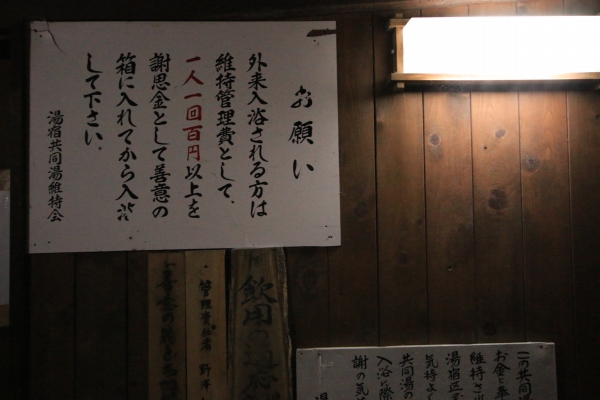 お願い
外来入浴される方は
維持管理費として、
一人一回百円以上を
謝恩金として善意の
箱に入れてから入浴
して下さい。
湯宿共同湯維持会
飲用の適応
管理責任者 野澤
この共同
お金と奉
維持され
湯宿区
気持
共同湯の
入浴に際
謝の気